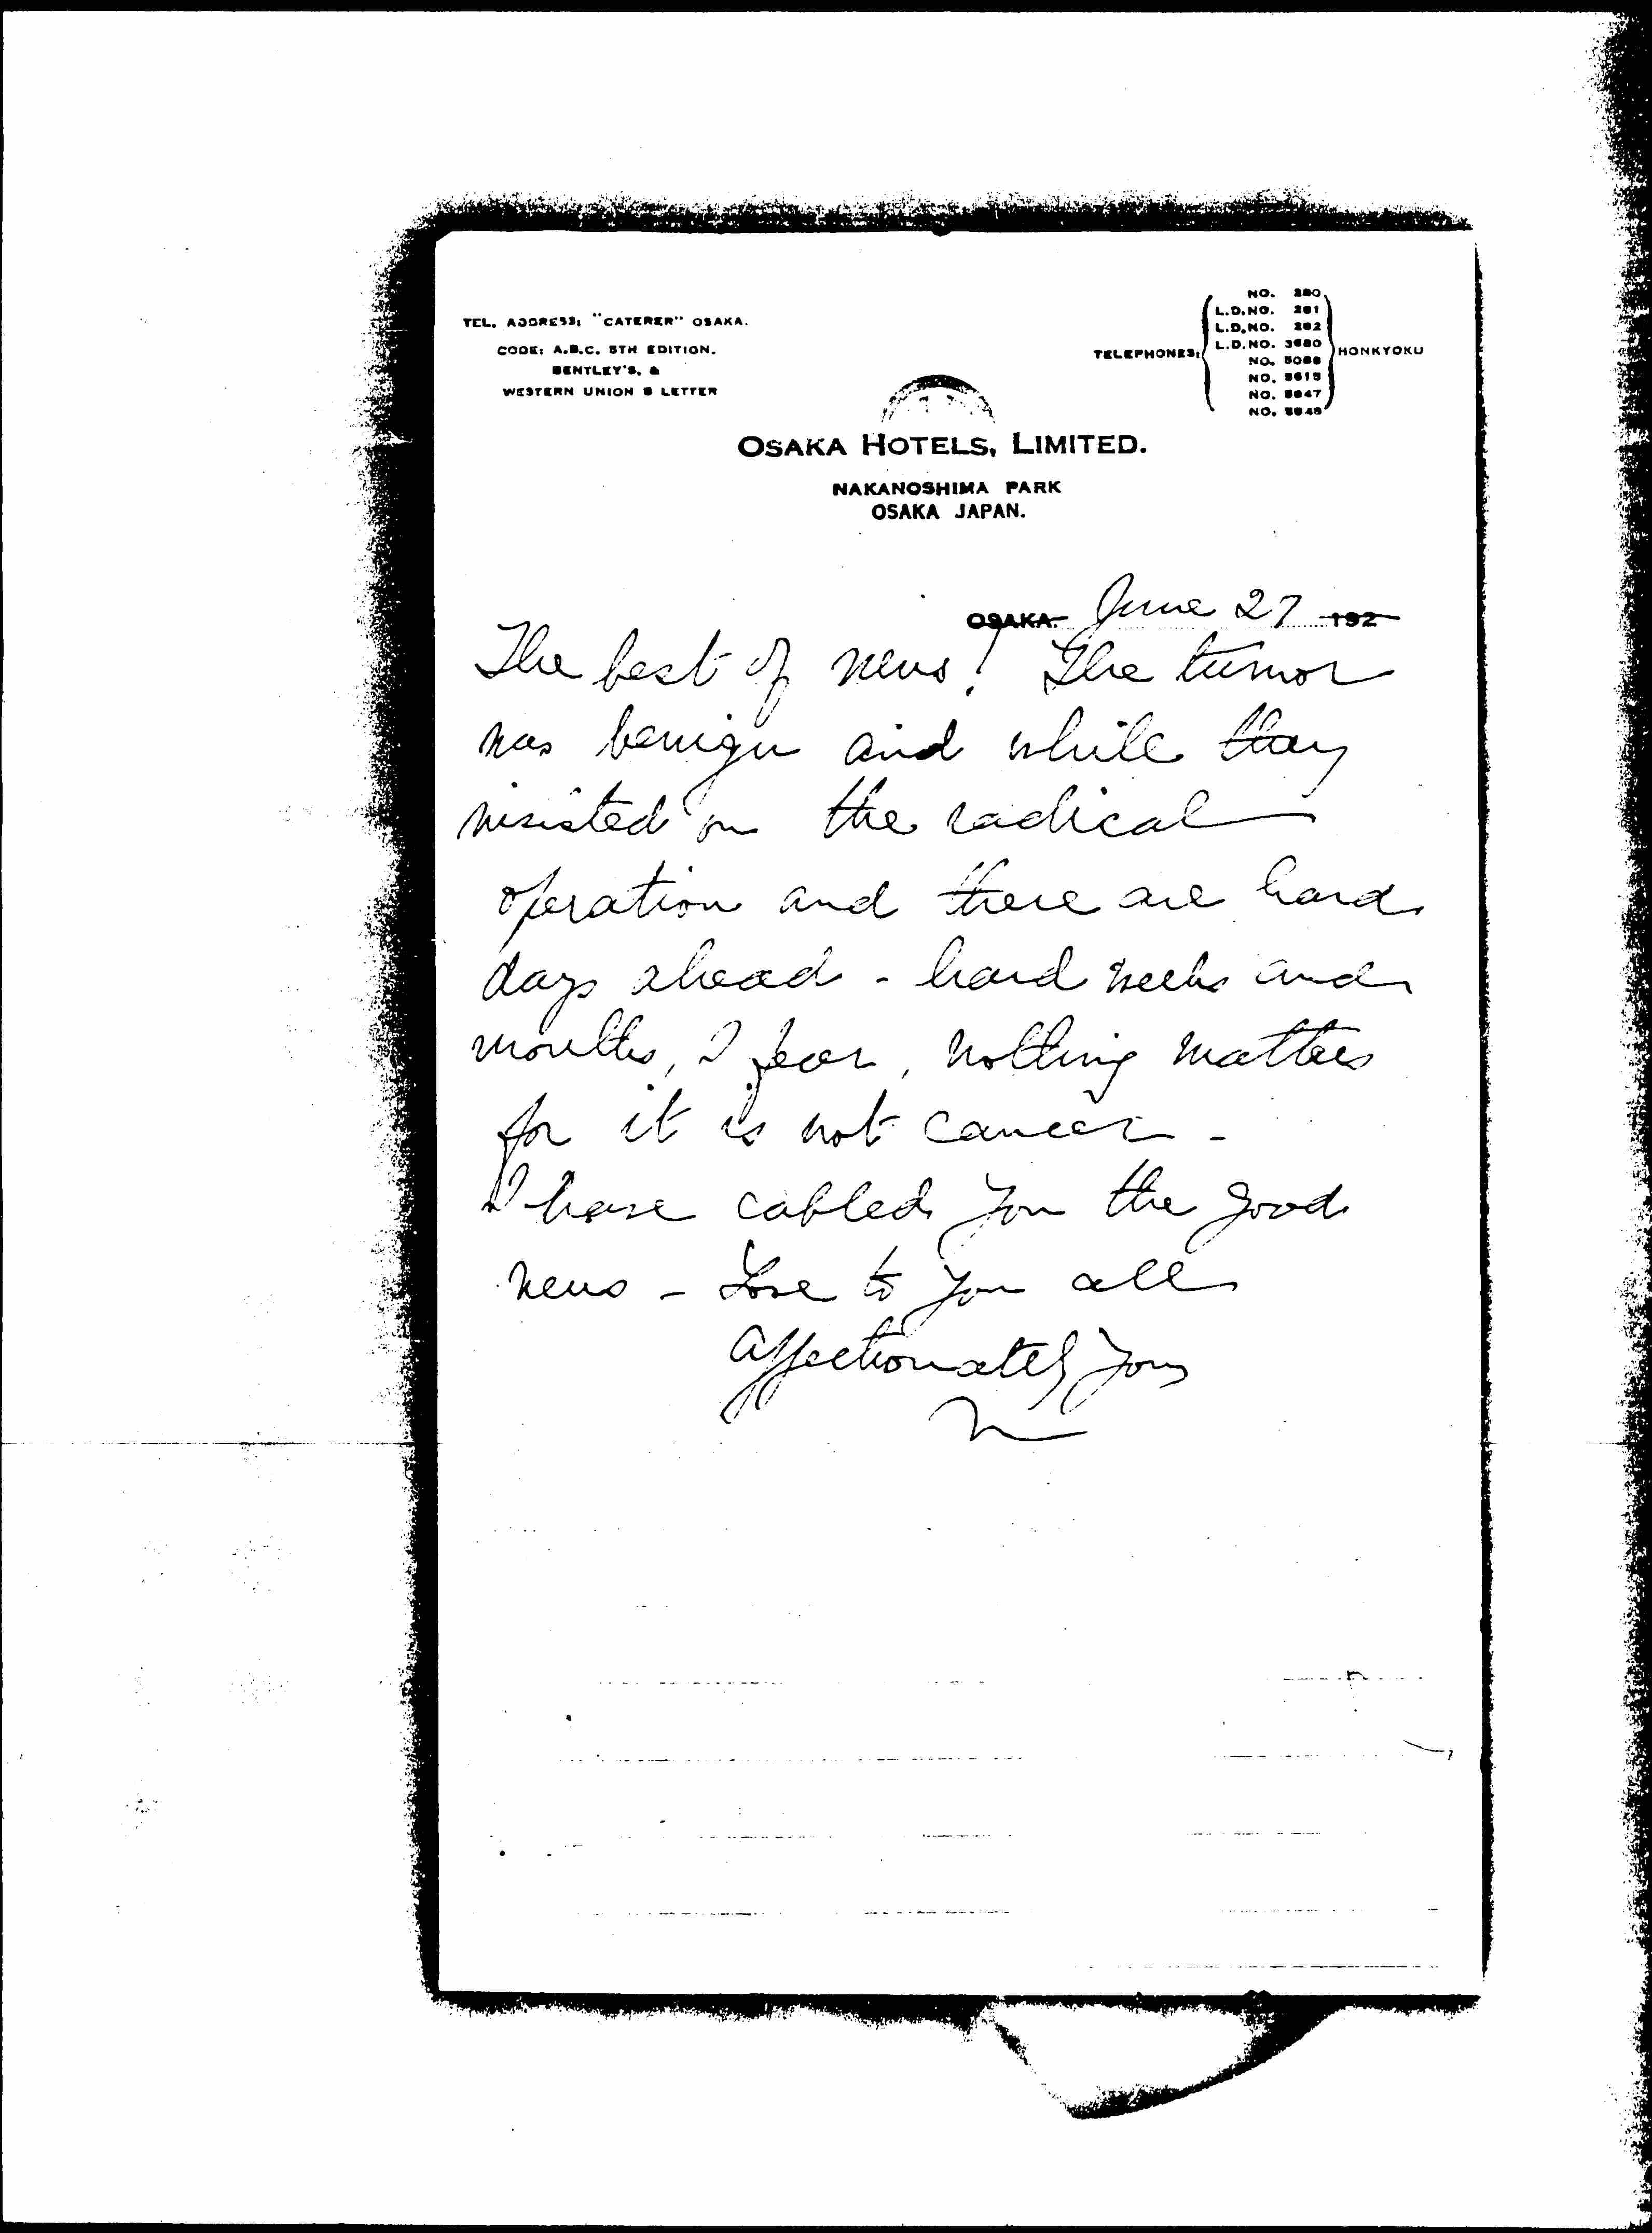 TEL. ADDRESS: "CATERER" OSAKA.
CODE: A.B.C. 5TH EDITION.
BENTLEY'S, &
WESTERN UNION 5 LETTER
TELEPHONES:
NO. 280
L.D.NO. 281
L.D.NO. 282
L.D.NO. 3680
NO.
NO. 5615
NO.
NO.
HONKYOKU
OSAKA HOTELS, LIMITED.
NAKANOSHIMA PARK
OSAKA JAPAN.
OSAKA. June 27 192
The best of news! The tumor
was benign and while they
insisted on the radical
operation and there are hard
days ahead - hard weeks and
months, I fear, nothing matters
for it is not cancer -
I have cabled you the good
news - Love to you all
Affectionately yours